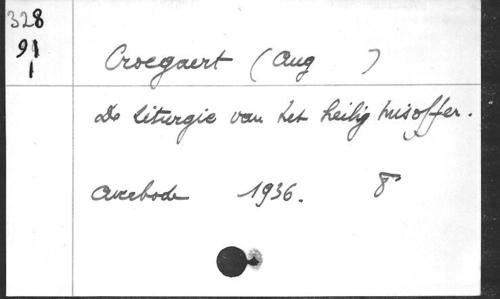 328
91
1
Croegaert (Aug )
De liturgie van het heilig misoffer.
Averbode 1936. 8°